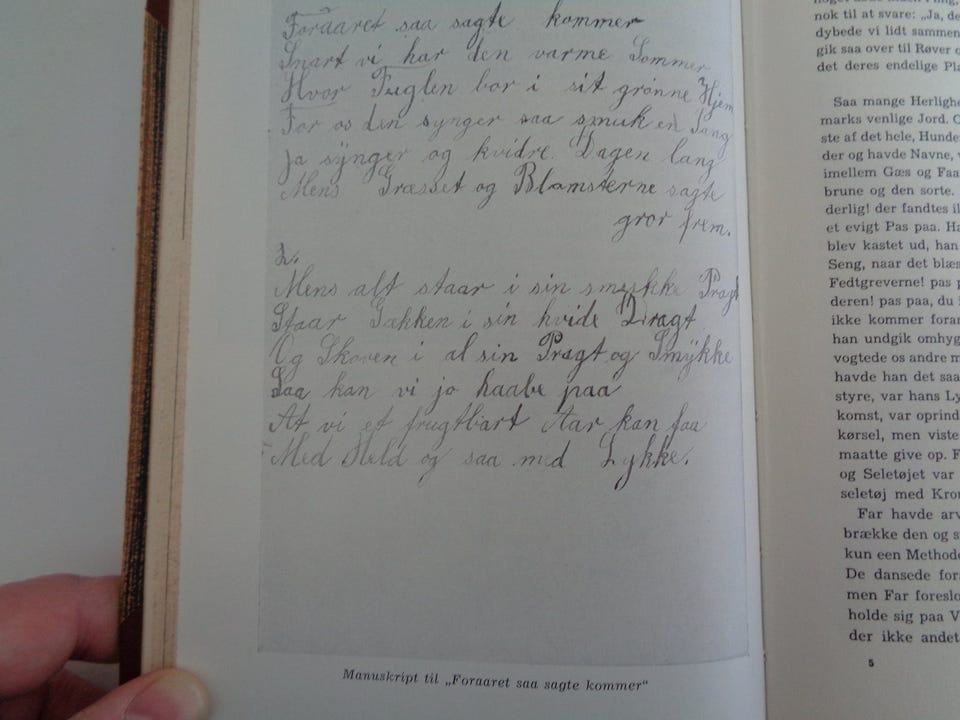 Foraaret saa sagte kommer
Snart vi har den varme Sommer
Hvor Fuglen bor i sit grønne Hjem
For os den synger saa smuk en Sang
Ja synger og kvidre Dagen lang
Mens Græsset og Blomsterne sagte
gror frem.
2.
Mens alt staar i sin smykke Pragt
Staar Gækken i sin hvide Dragt
Og Skoven i al sin Pragt og Smykke
Saa kan vi jo haabe paa
At vi et frugtbart Aar kan faa
Med Held og saa med Lykke.
Manuskript til „Foraaret saa sagte kommer“
nok til at svare: „Ja, de
dybede vi lidt sammen
gik saa over til Røver o
det deres endelige Pla
Saa mange Herlighe
marks venlige Jord. O
ste af det hele, Hunde
der og havde Navne, v
imellem Gæs og Faa
brune og den sorte.
derlig! der fandtes i
et evigt Pas paa. Ha
blev kastet ud, han
Seng, naar det blæs
Fedtgreverne! pas p
deren! pas paa, du i
ikke kommer foran
han undgik omhyg
vogtede os andre m
havde han det saa
styre, var hans Ly
komst, var oprind
kørsel, men viste
maatte give op. F
og Seletøjet var
seletøj med Kron
Far havde arv
brække den og s
kun een Methode
De dansede fora
men Far foreslo
holde sig paa V
der ikke andet
5